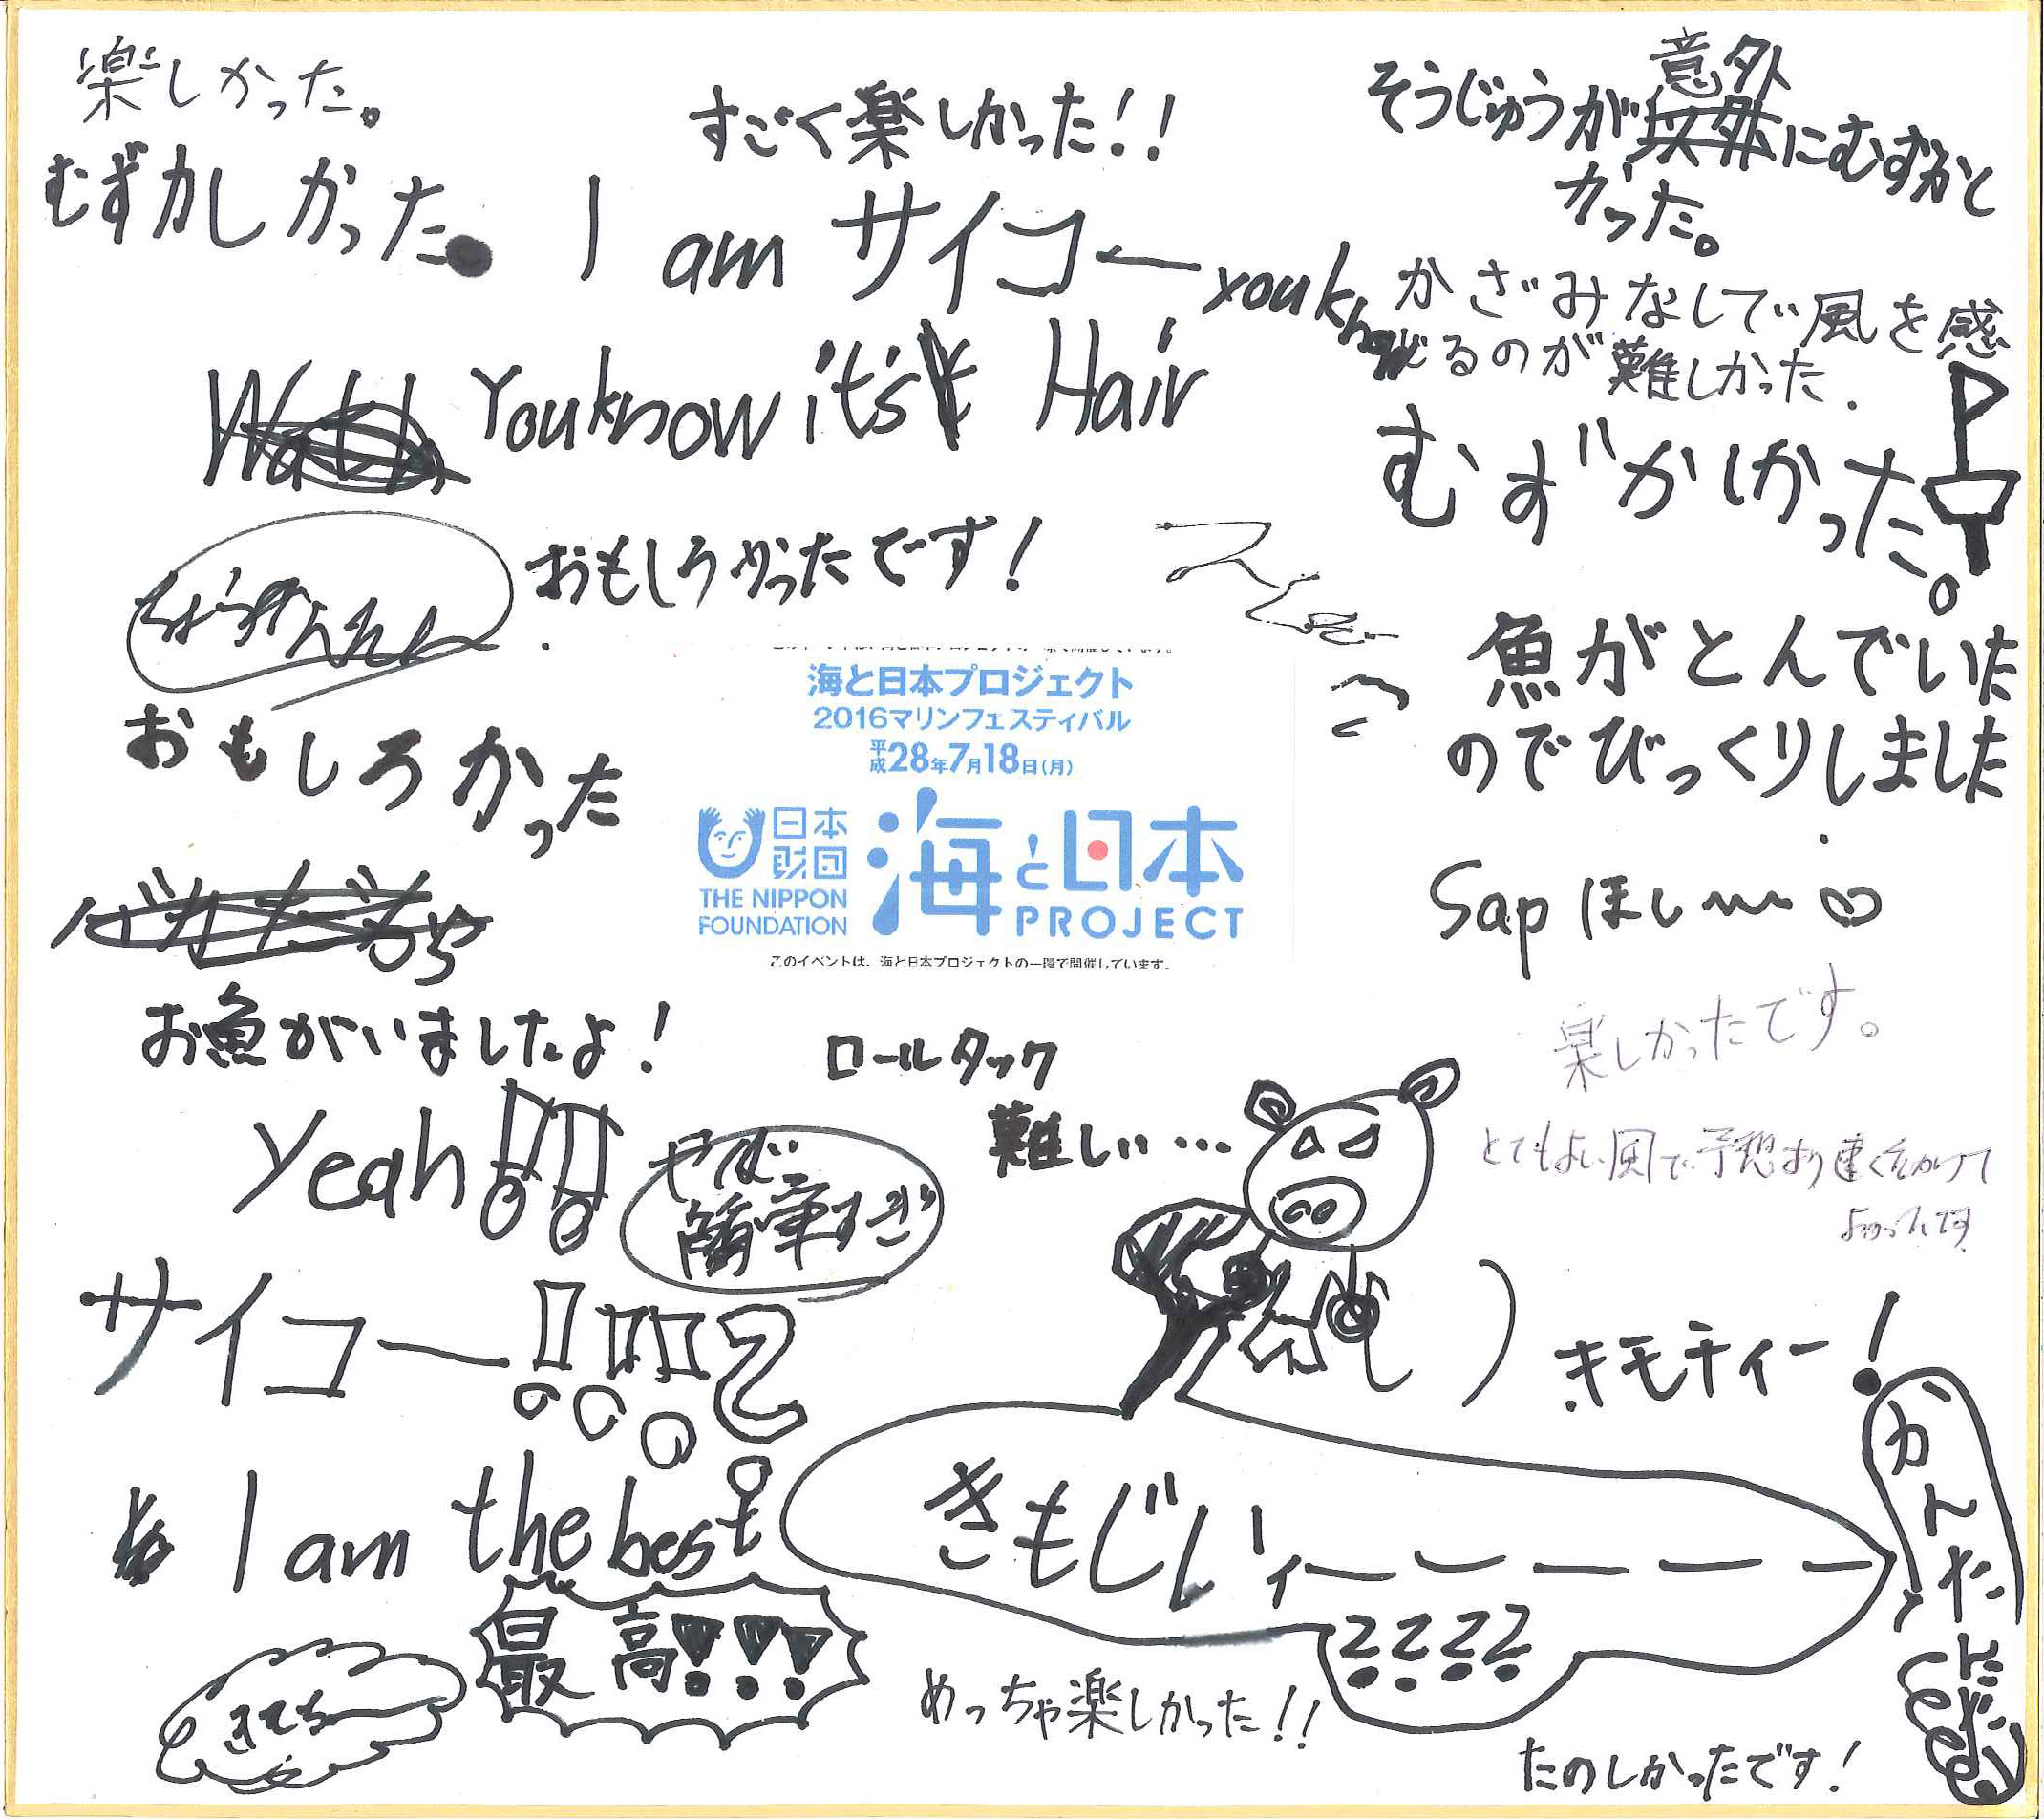 楽しかった。
むずかしかった。
すごく楽しかった!!
意外
そうじゅうが にむずかし
かった。
I am サイコー
you know
かざみなしで風を感
じるのが難しかった.
You know it's Hair
むずかしかった。
おもしろかったです!
魚がとんでいた
のでびっくりしました
おもしろかった
海と日本プロジェクト
2016マリンフェスティバル
平成28年7月18日(月)
日本財団
THE NIPPON
FOUNDATION
海と日本
PROJECT
このイベントは、海と日本プロジェクトの一環で開催しています。
Sap ほしい〜 ♡
お魚がいましたよ!
ロールタック
難しい…
楽しかったです。
とてもよい風で予想より速くて
よかったです
Yeah!!
やばい
簡単すぎ
サイコー!!!?
キモティー!
I am the best
きもじいィーーーーー
????
かんた
最高!!!
めっちゃ楽しかった!!
たのしかったです!